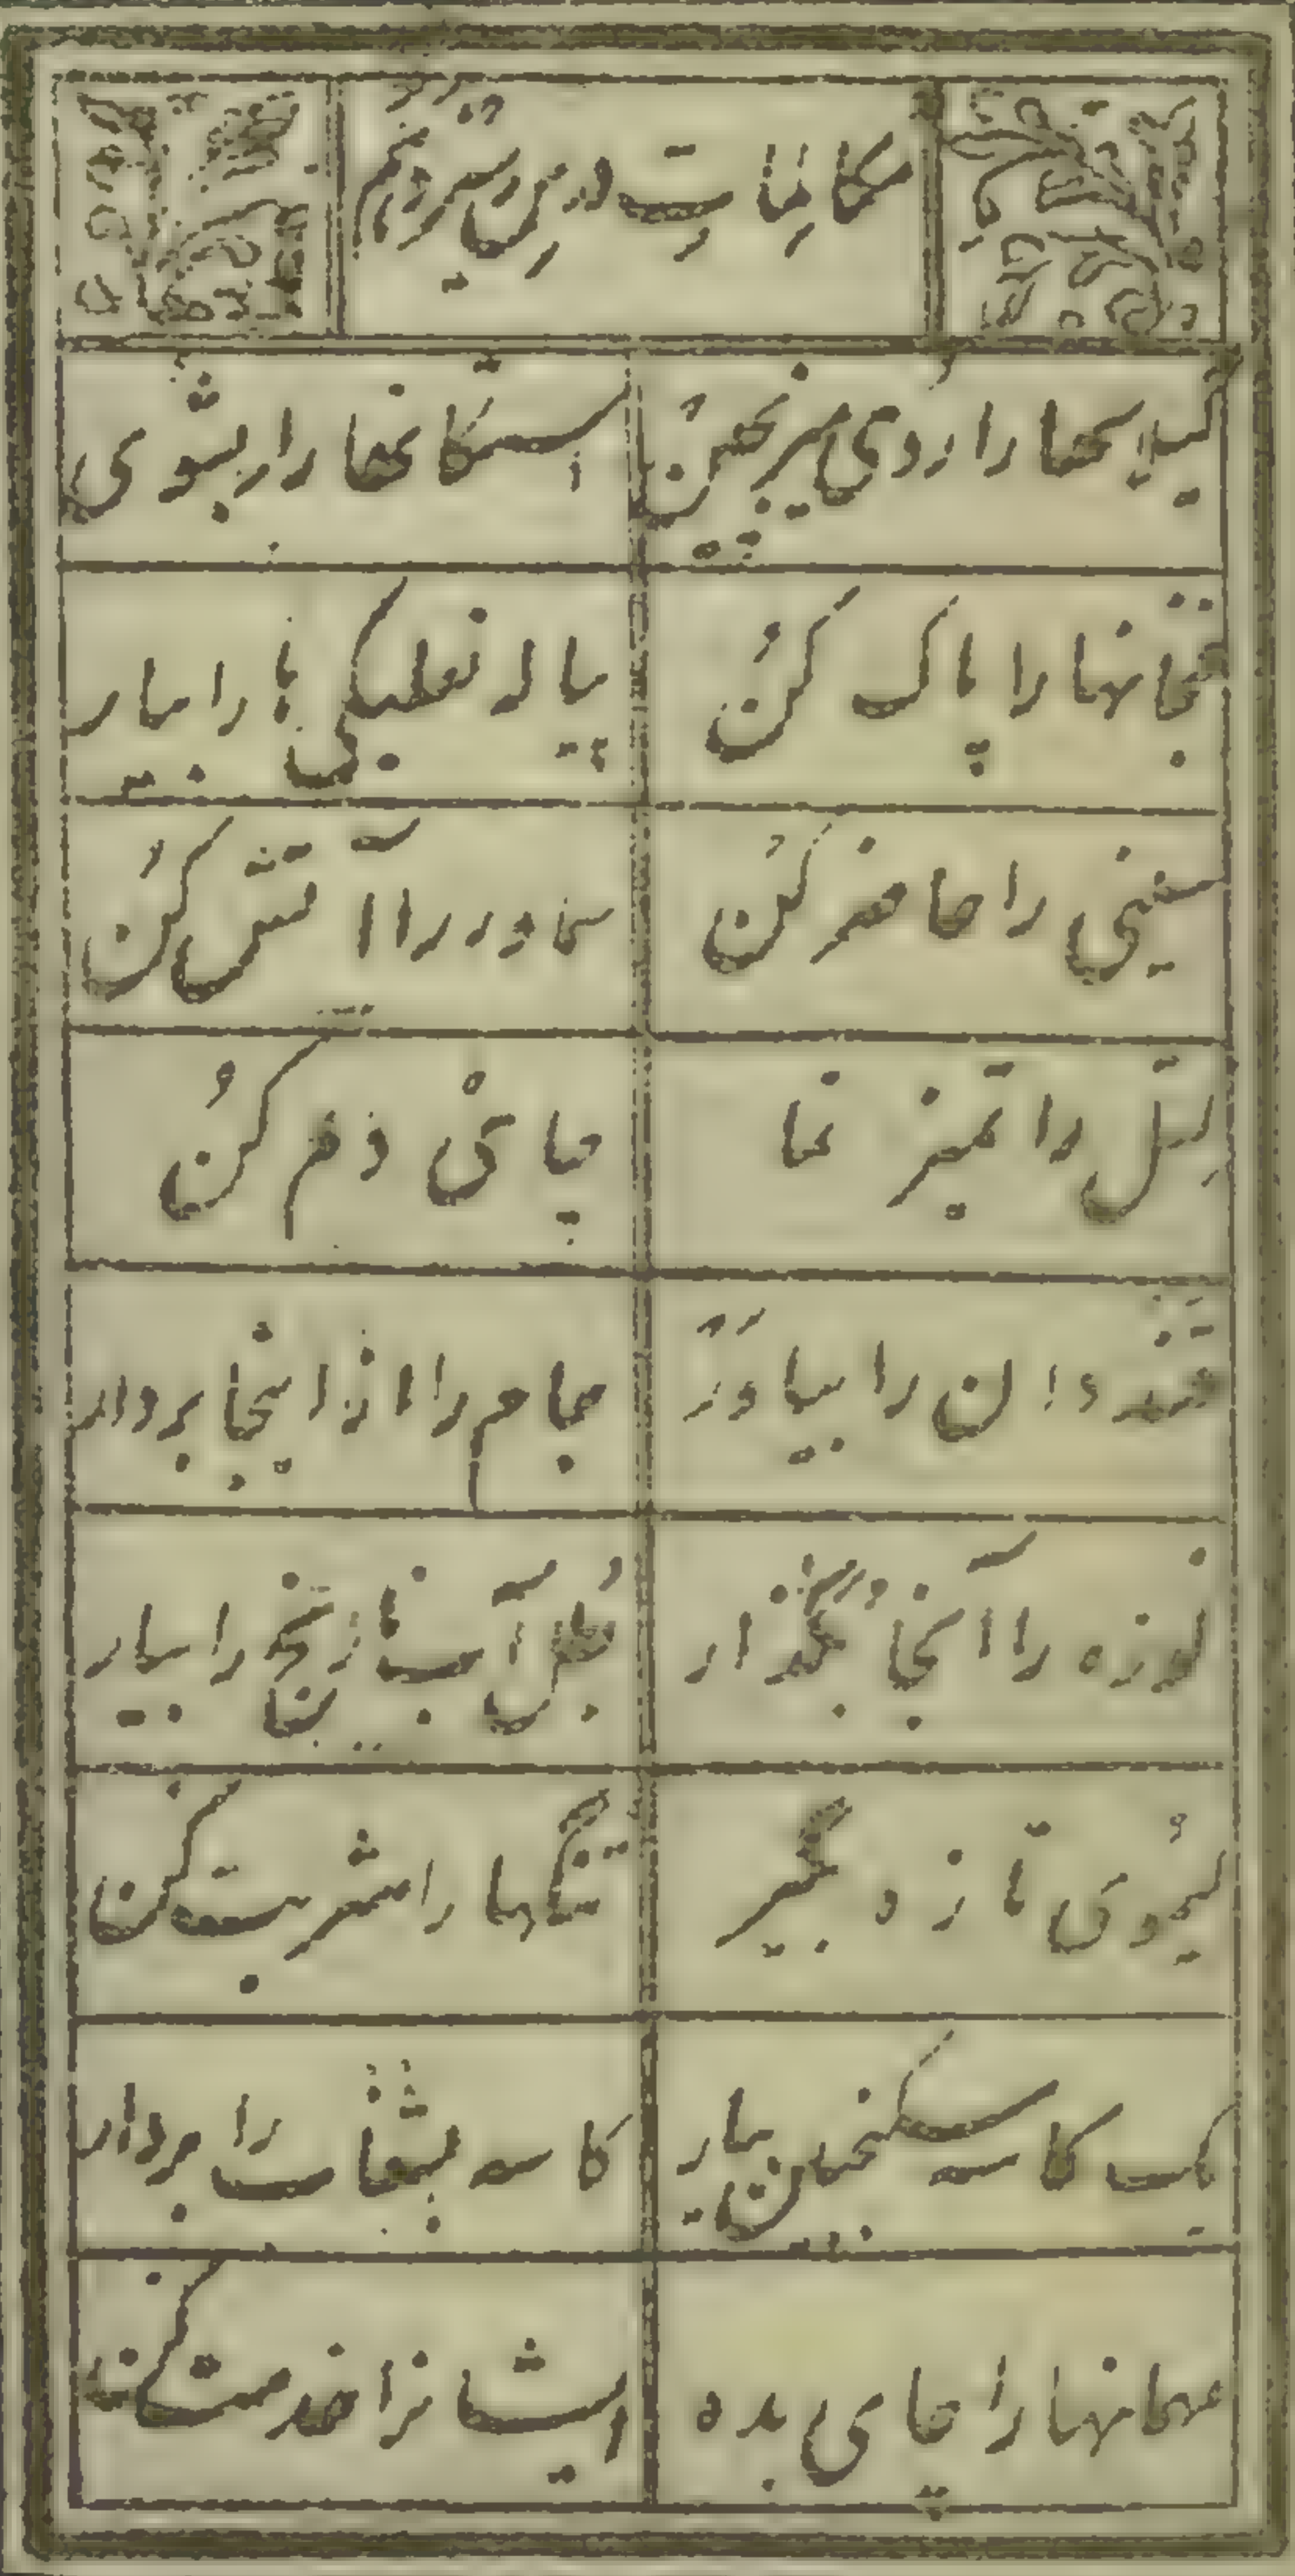 مکافات درس سیزدهم
گیلاسها را روی میز بچین
استکانها را بشوی
فنجانها را پاک کُن
پیاله نعلبکی ها را بیار
سینی را حاضر کُن
سماور را آتش کُن
لِل را تمیز نما
چائی دم کُن
قندان را بیاوَر
جام را از اینجا بردار
کوزه را آنجا بُگذار
آب نارنج را بیار
لیمُوی تازه بگیر
تنگها را شربت کن
یک کاسه سکنجبین بیار
کاسه بشقاب را بردار
مهمانها را چای بده
ایشانرا خدمت کن